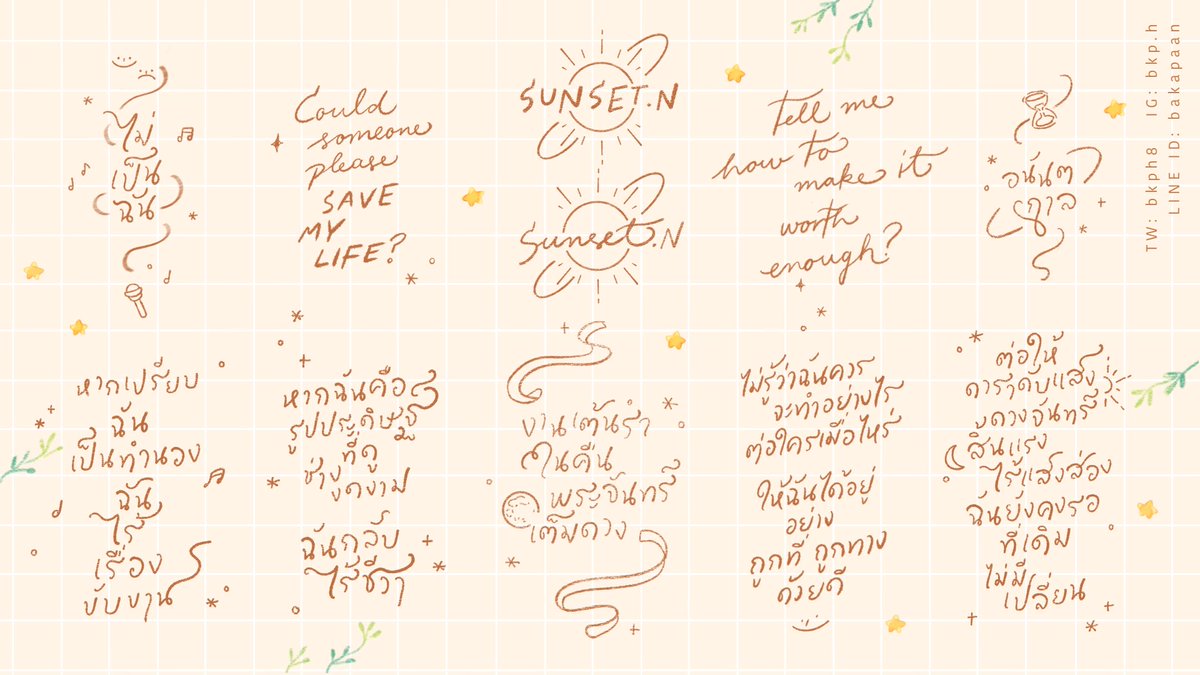 ไม่
เป็น
ฉัน
Could
someone
please
SAVE
MY
LIFE?
SUNSET.N
Sunset.N
Tell me
how to
make it
worth
enough?
อนันต
กาล
TW: bkph8 IG: bkp.h
LINE ID: bakapaan
หากเปรียบ
ฉัน
เป็นทำนอง
ฉัน
ไร้
เรื่อง
ขับขาน
หากฉันคือ
รูปประดิษฐ์
ที่ดู
ช่างงดงาม
ฉันกลับ
ไร้ชีวา
งานเต้นรำ
ในคืน
พระจันทร์
เต็มดวง
ไม่รู้ว่าฉันควร
จะทำอย่างไร
ต่อใครเมื่อไหร่
ให้ฉันได้อยู่
อย่าง
ถูกที่ ถูกทาง
ด้วยดี
ต่อให้
ดาราดับแสง
ดวงจันทร์
สิ้นแรง
ไร้แสงส่อง
ฉันยังคงรอ
ที่เดิม
ไม่มี
เปลี่ยน